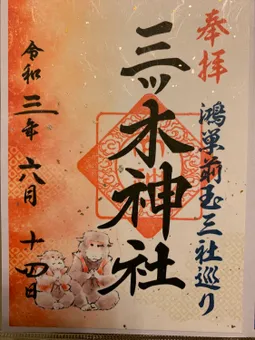 奉拝
鴻巣前玉三社巡り
三ツ木神社
令和三年六月十四日